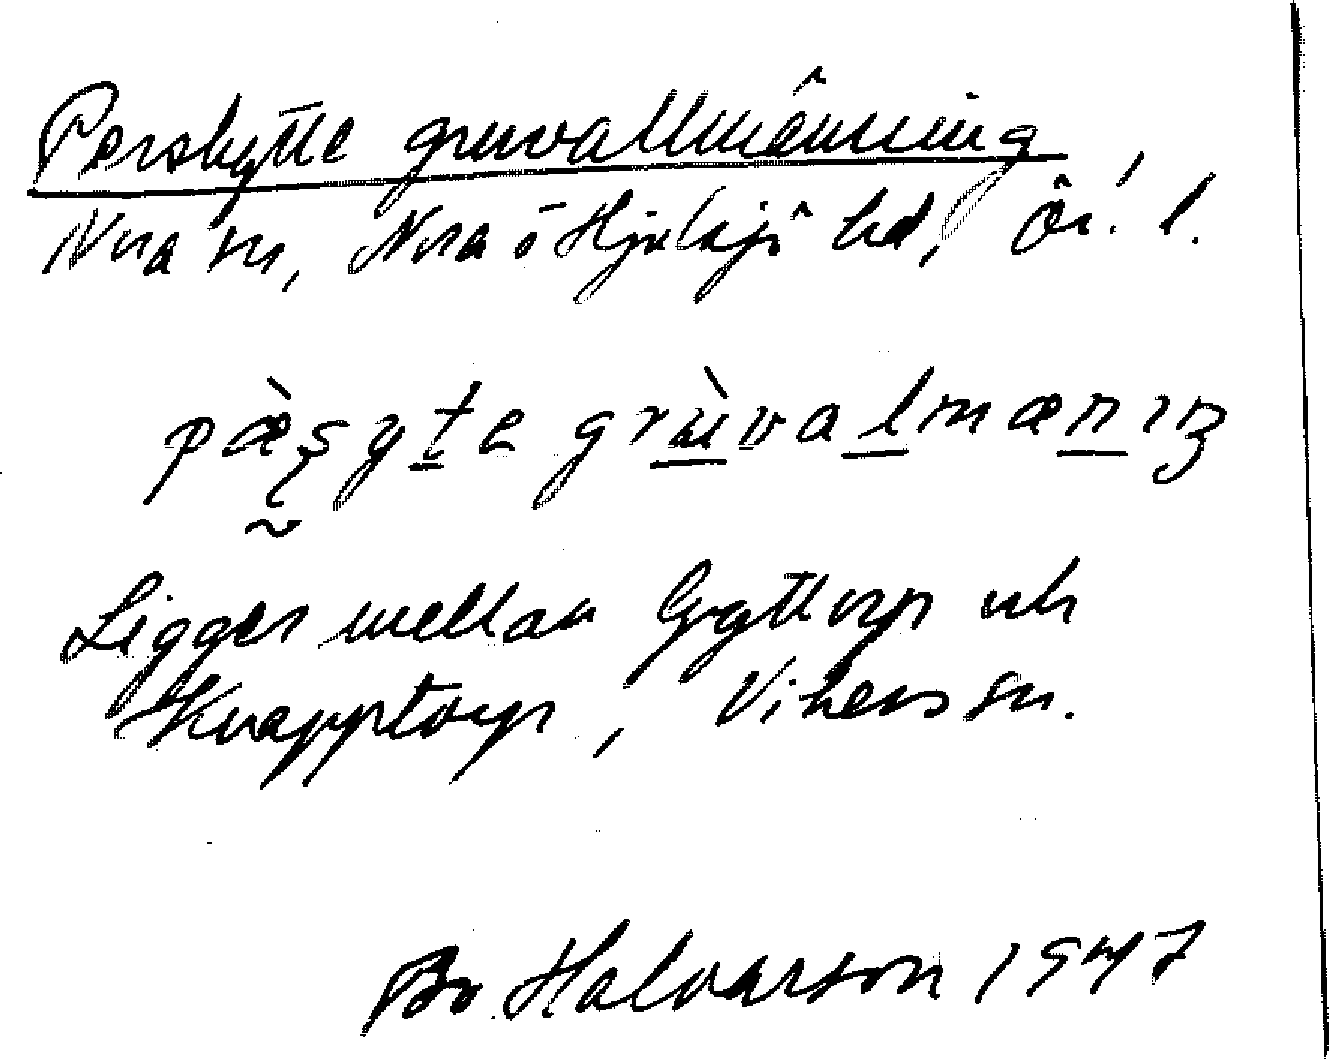 Perskytte gruvallmänning,
Nora sn, Nora o Hjulsjö hd, Ör. l.
pæ̀şyte grùvalmæniŋ
Ligger mellan Gyttorp och
Knapptorp, Vikers sn.
Bo Halvarson 1947